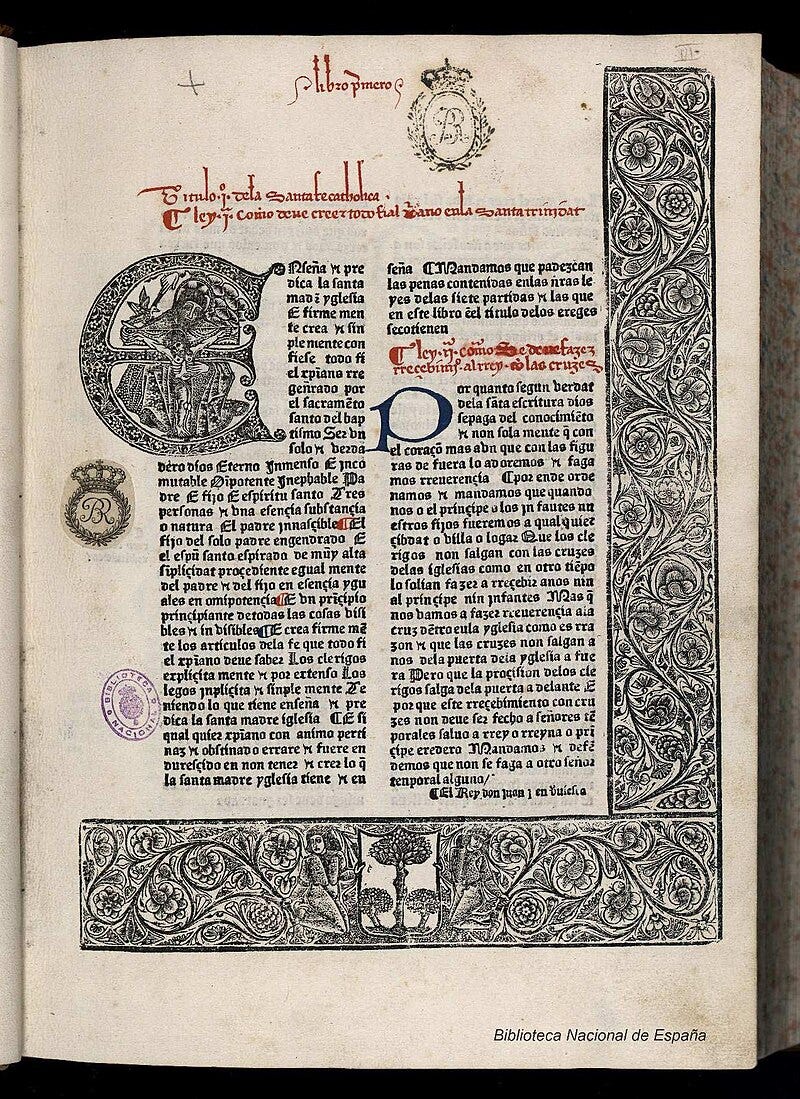 libro p̃mero
III
Titulo .j̊. dela Santa fe catholica .
¶ ley .j̊. como deue creer todo fial xp̃ano enla Santa trinidat
ENseña ⁊ pre
dica la santa
mad̃ yglesia
E firme men
te crea ⁊ sin
ple niente con
fiese todo fi
el xp̃iano rre
genrado por
el sacramẽto
santo del bap
tismo Ser vn
solo ⁊ verda
dero dios Eterno Jnmenso E jnco
mutable Om̃ipotente Jnephable Pa
dre E fijo E espiritu santo Tres
personas ⁊ vna esençia substançia
o natura El padre jnnasçible ¶ El
fijo del solo padre engendrado E
el esp̃u santo espirado de muy alta
sĩpliçidat proçediente egual mente
del padre ⁊ del fijo en esençia ygu
ales en omipotençia ¶ E vn prĩçipio
prinçipiante de todas las cosas visi
bles ⁊ in visibles ¶ E crea firme mẽ
te los articulos dela fe que todo fi
el xp̃iano deue saber Los clerigos
expliçita mente ⁊ por extenso Los
legos jnpliçita ⁊ sinple mente Te
niendo lo que tiene enseña ⁊ pre
dica la santa madre iglesia ¶ E si
qual quier xp̃iano con animo perti
naz ⁊ obstinado errare ⁊ fuere en
duresçido en non tener ⁊ creer lo q̃
la santa madre yglesia tiene ⁊ en
seña ¶ Mandamos que padezcan
las penas contenidas enlas ñras le
yes delas siete partidas ⁊ las que
en este libro eñl titulo delos ereges
se contienen
¶ ley .ij̊. como Se deue fazer
rreçebimĩ. al rrey. cõ las cruzes
Por quanto segun verdat
dela sãta escritura dios
se paga del conoçimiẽto
⁊ non sola mente q̃ con
el coraçõ mas avn que con las figu
ras de fuera lo adoremos ⁊ faga
mos rreuerençia ¶ por ende orde
namos ⁊ mandamos que quando
nos o el prinçipe o los jnfautes nu
estros fijos fueremos a qual quier
çibdat o villa o logar Que los cle
rigos non salgan con las cruzes
delas iglesias como en otro tiẽpo
lo solian fazer a rreçebir anos nin
al prinçipe nin jnfantes Mas q̃
nos vamos a fazer rreuerençia ala
cruz dẽtro eula yglesia como es rra
zon ⁊ que las cruzes non salgan a
nos dela puerta dela yglesia a fue
ra Pero que la proçision delos cle
rigos salga dela puerta a delante E
por que este rreçebimiento con cru
zes non deue ser fecho a señores tẽ
porales saluo a rrey o rreyna o pri
çipe eredero Mandamos ⁊ defẽ
demos que non se faga a otro señor
tenporal alguno/
¶ El Rey don juan j en
BIBLIOTECA NACIONAL
Biblioteca Nacional de España